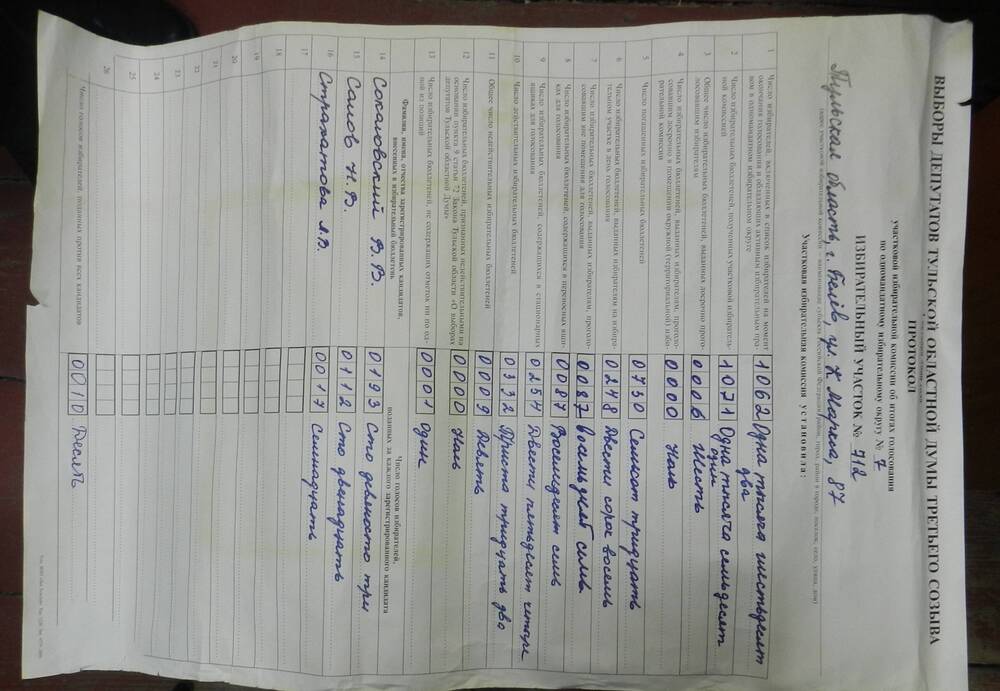 ВЫБОРЫ ДЕПУТАТОВ ТУЛЬСКОЙ ОБЛАСТНОЙ ДУМЫ ТРЕТЬЕГО СОЗЫВА
ПРОТОКОЛ
участковой избирательной комиссии об итогах голосования
по одномандатному избирательному округу № 7
ИЗБИРАТЕЛЬНЫЙ УЧАСТОК № 712
Тульская область, г. Белёв, ул. К. Маркса, 87
(адрес участковой избирательной комиссии – наименование субъекта Российской Федерации, район, город, район в городе, поселок, село, улица, дом)
Участковая избирательная комиссия установила:
1 Число избирателей, включенных в список избирателей на момент
окончания голосования и обладающих активным избирательным пра-
вом в одномандатном избирательном округе
1062 Одна тысяча шестьдесят
два
2 Число избирательных бюллетеней, полученных участковой избиратель-
ной комиссией
1071 Одна тысяча семьдесят
один
3 Общее число избирательных бюллетеней, выданных досрочно прого-
лосовавшим избирателям
0006 Шесть
4 Число избирательных бюллетеней, выданных избирателям, проголо-
совавшим досрочно в помещении окружной (территориальной) изби-
рательной комиссии
0000 Ноль
5 Число погашенных избирательных бюллетеней
0730 Семьсот тридцать
6 Число избирательных бюллетеней, выданных избирателям на избира-
тельном участке в день голосования
0248 Двести сорок восемь
7 Число избирательных бюллетеней, выданных избирателям, проголо-
совавшим вне помещения для голосования
0087 Восемьдесят семь
8 Число избирательных бюллетеней, содержащихся в переносных ящи-
ках для голосования
0087 Восемьдесят семь
9 Число избирательных бюллетеней, содержащихся в стационарных
ящиках для голосования
0254 Двести пятьдесят четыре
10 Число действительных избирательных бюллетеней
0332 Триста тридцать два
11 Общее число недействительных избирательных бюллетеней
0009 Девять
12 Число избирательных бюллетеней, признанных недействительными на
основании пункта 9 статьи 72 Закона Тульской области «О выборах
депутатов Тульской областной Думы»
0000 Ноль
13 Число избирательных бюллетеней, не содержащих отметок ни по од-
ной из позиций
0001 Один
Фамилии, имена, отчества зарегистрированных кандидатов,
внесенных в избирательный бюллетень
Число голосов избирателей,
поданных за каждого зарегистрированного кандидата
14 Сокаловский В. В. 0193 Сто девяносто три
15 Сомов Н.В. 0112 Сто двенадцать
16 Страхатова Л.В. 0017 Семнадцать
17
18
19
20
21
22
23
24
25
26
Число голосов избирателей, поданных против всех кандидатов 0010 Десять